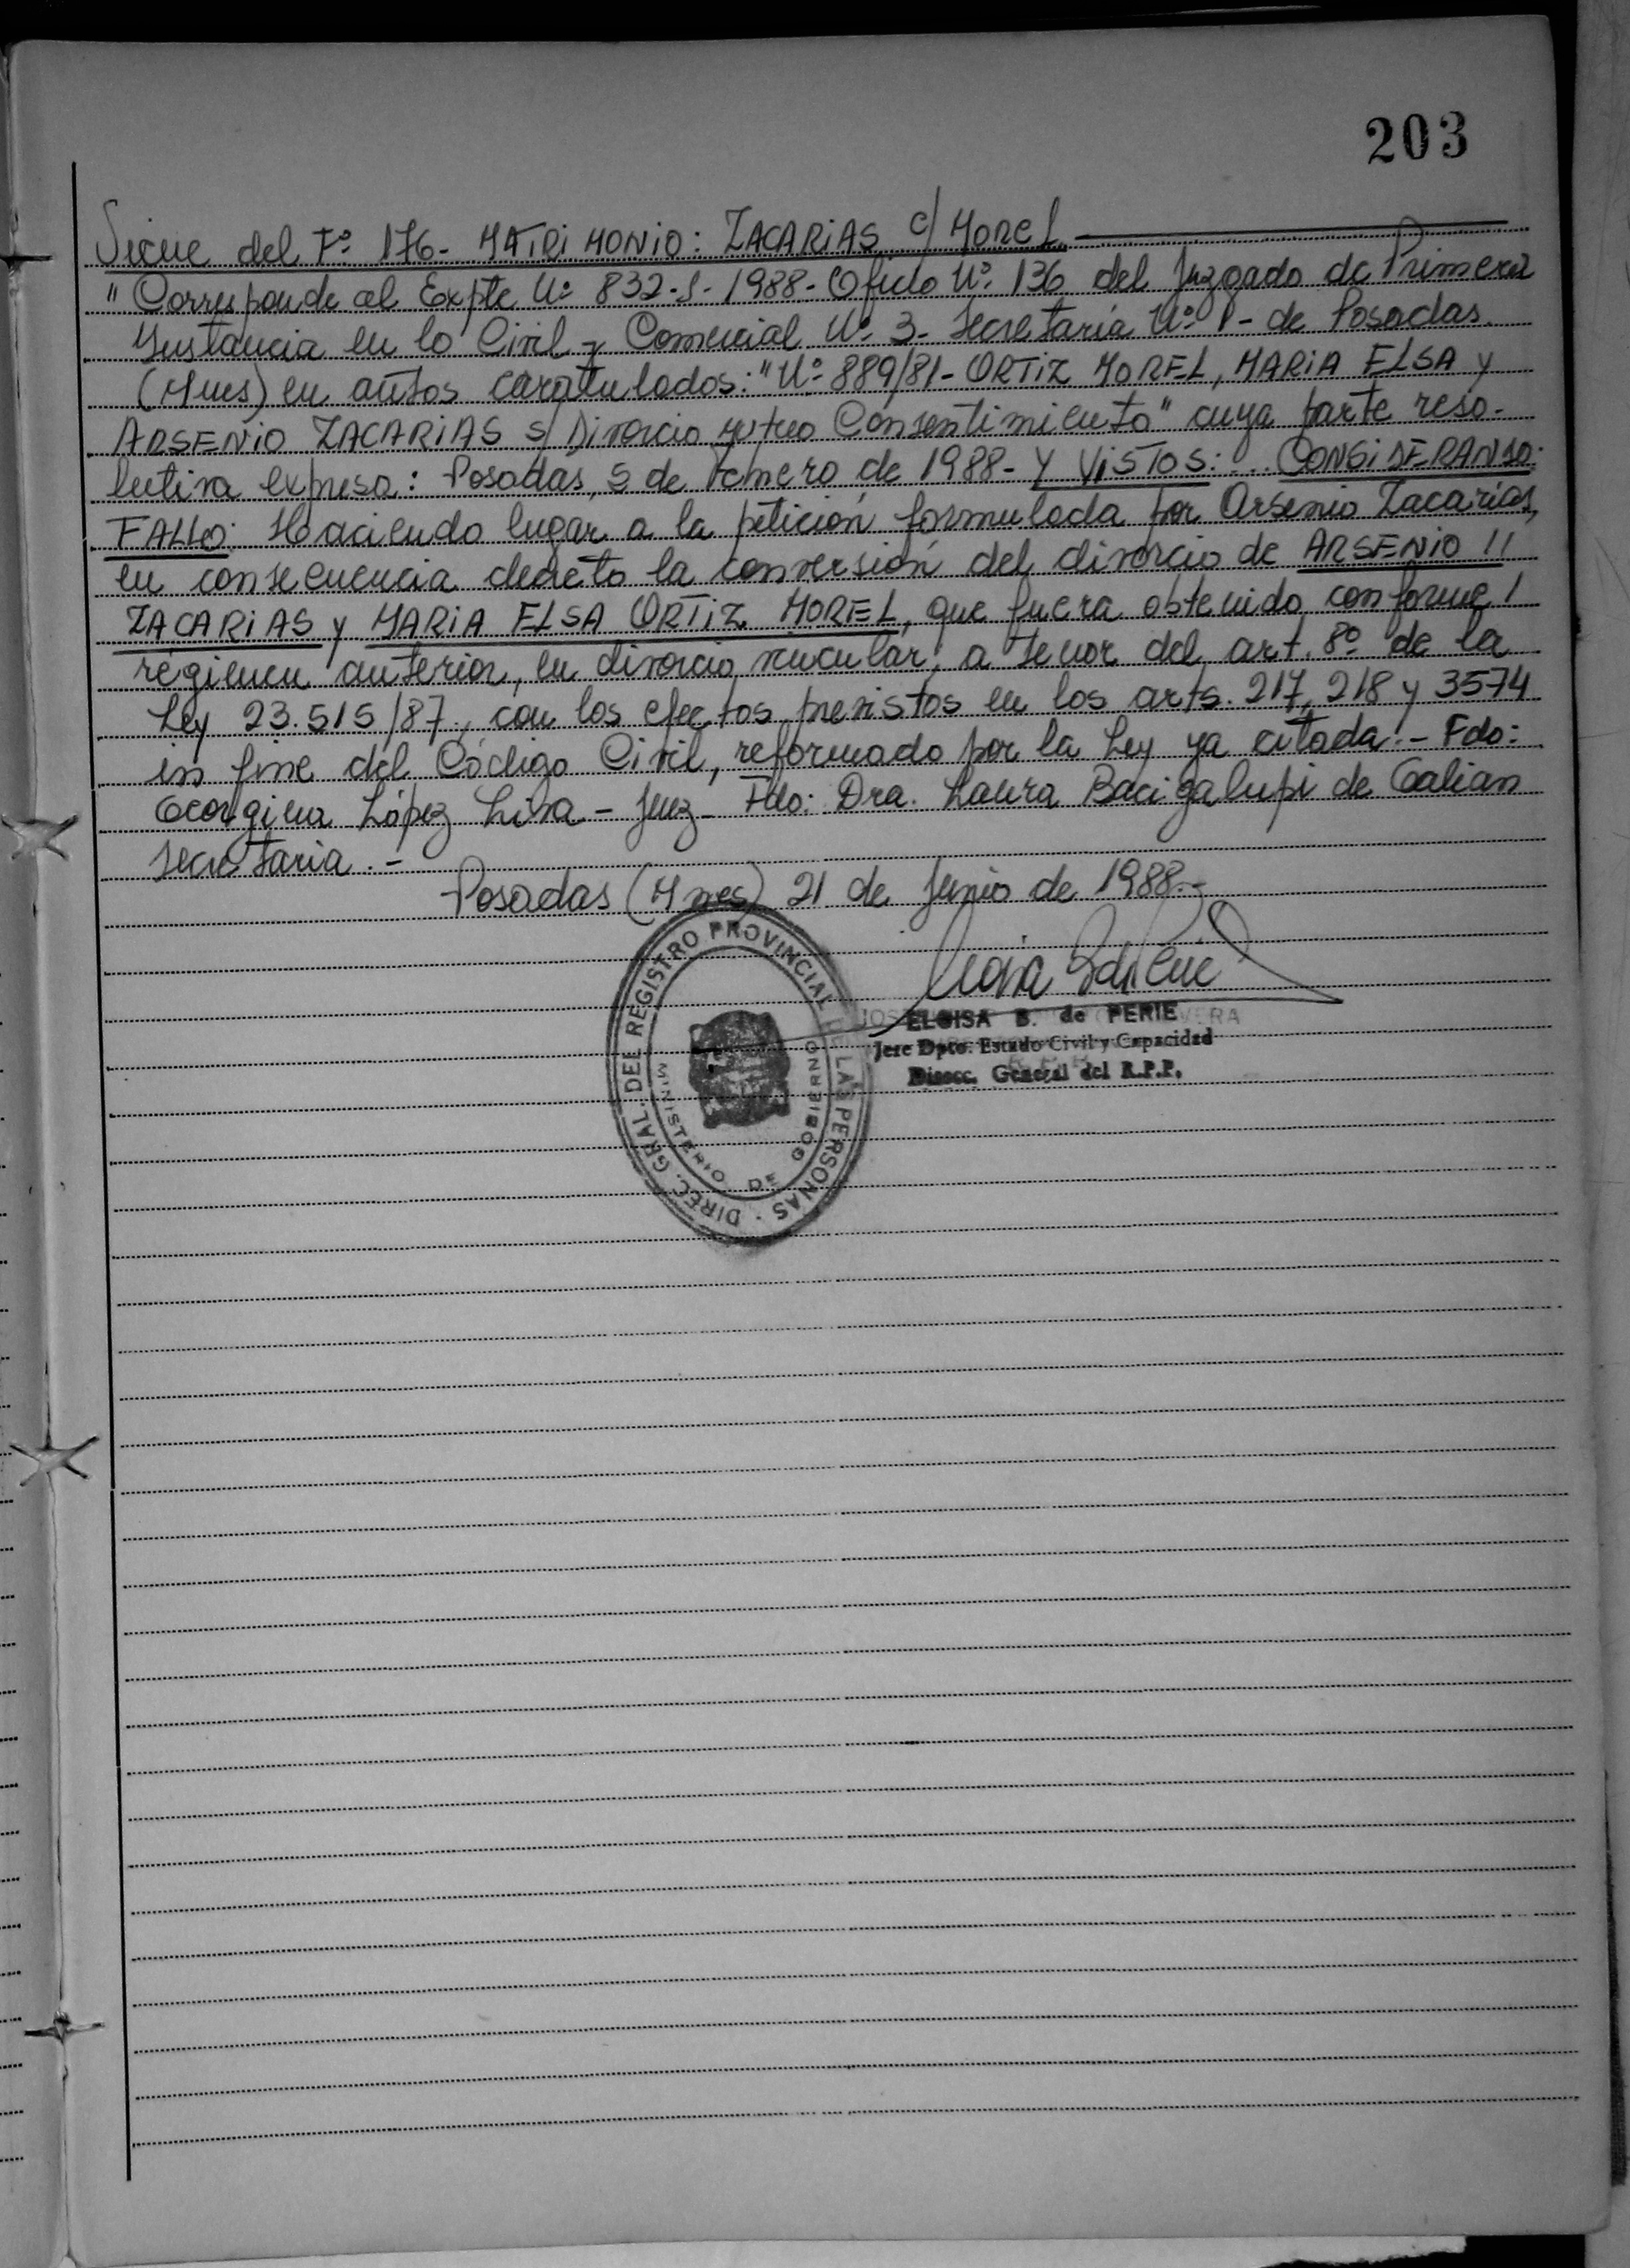 203
Sigue del Fº 176- MATRIMONIO: ZACARIAS c/ MOREL.
"Corresponde al Expte Nº 832-J-1988- Oficio Nº 136 del Juzgado de Primera
Instancia en lo Civil y Comercial Nº 3- Secretaria Nº 1- de Posadas
(Mnes) en autos caratulados: "Nº 889/81- ORTIZ MOREL, MARIA ELSA y
ARSENIO ZACARIAS s/ Divorcio Mutuo Consentimiento" cuya parte reso-
lutiva expresa: Posadas, 5 de de 1988- Y VISTOS: ... CONSIDERANDO:
FALLO: Haciendo lugar a la petición formulada por Arsenio Zacarias,
en consecuencia decreto la conversión del divorcio de ARSENIO //
ZACARIAS y MARIA ELSA ORTIZ MOREL, que fuera obtenido conforme /
régimen anterior, en divorcio vincular, a tenor del art. 8º de la
Ley 23.515/87, con los efectos previstos en los arts. 217, 218 y 3574
in fine del Código Civil, reformado por la Ley ya citada.- Fdo:
Georgina López Liva - Juez- Fdo: Dra. Laura Bacigalupi de Galian
Secretaria.-
Posadas (Mnes) 21 de Junio de 1988.-
DIREC. GRAL. DEL REGISTRO PROVINCIAL DE LAS PERSONAS
MINISTERIO DE GOBIERNO
ELOISA B. de PERIE
Jefe Dpto. Estado Civil y Capacidad
Direcc. General del R.P.P.